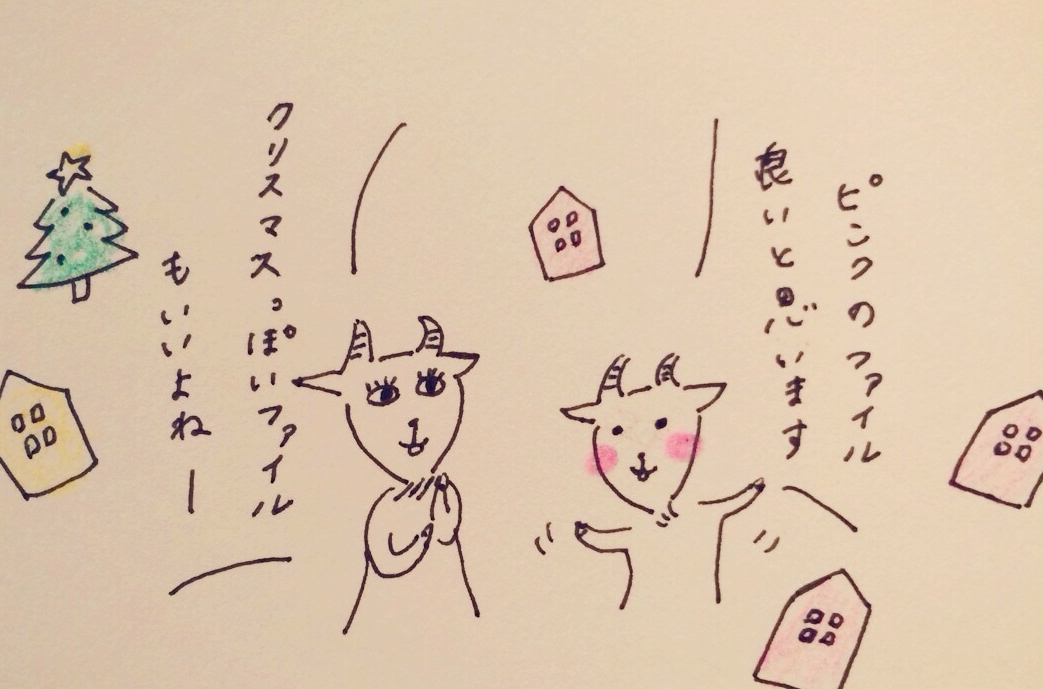 ピンクのファイル
良いと思います
クリスマスっぽいファイル
もいいよねー